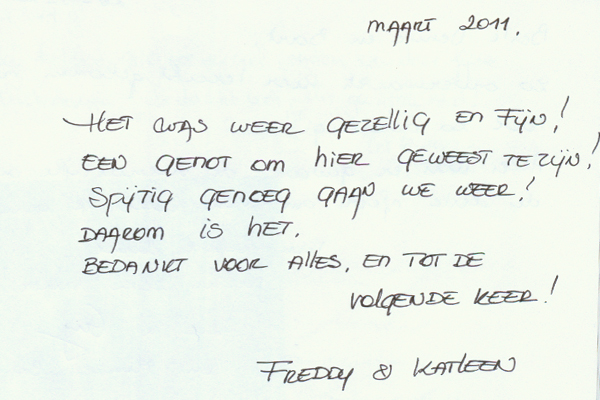 MAART 2011.
HET WAS WEER GEZELLIG EN FIJN!
EEN GENOT OM HIER GEWEEST TE ZIJN!
SPIJTIG GENOEG GAAN WE WEER!
DAAROM IS HET.
BEDANKT VOOR ALLES, EN TOT DE
VOLGENDE KEER!
FREDDY & KATLEEN